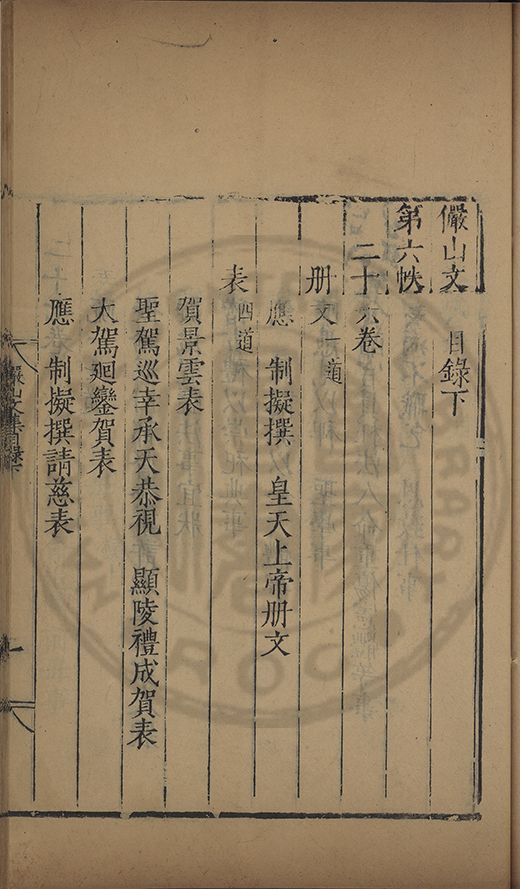 儼山文 目錄下
第六帙
二十六卷
册文一道
應 制擬撰 皇天上帝册文
表四道
賀景雲表
聖駕巡幸承天恭視 顯陵禮成賀表
大駕廻鑾賀表
應 制擬撰請慈表